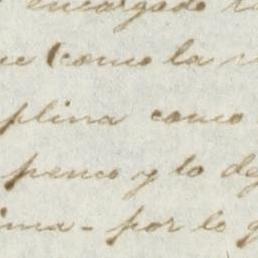 encargado
(como la
plina como
penco y lo de
ima - por lo